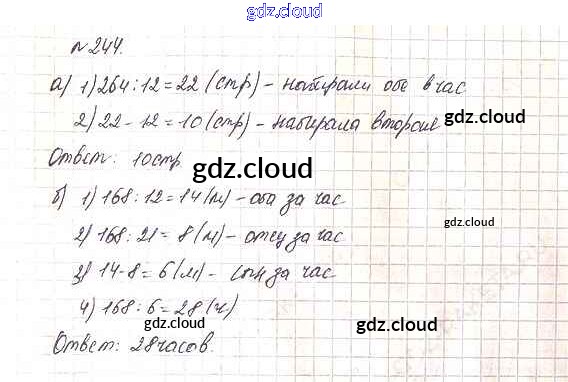 gdz.cloud
№244.
gdz.cloud
а) 1) 264:12=22 (стр) - набирали обе в час
gdz.cloud
2) 22-12=10 (стр) - набирала вторая
Ответ: 10стр
gdz.cloud
б) 1) 168:12=14 (м) - оба за час
gdz.cloud
2) 168:21=8 (м) - отец за час
3) 14-8=6 (м) - сын за час
4) 168:6=28 (ч)
gdz.cloud gdz.cloud
Ответ: 28часов.